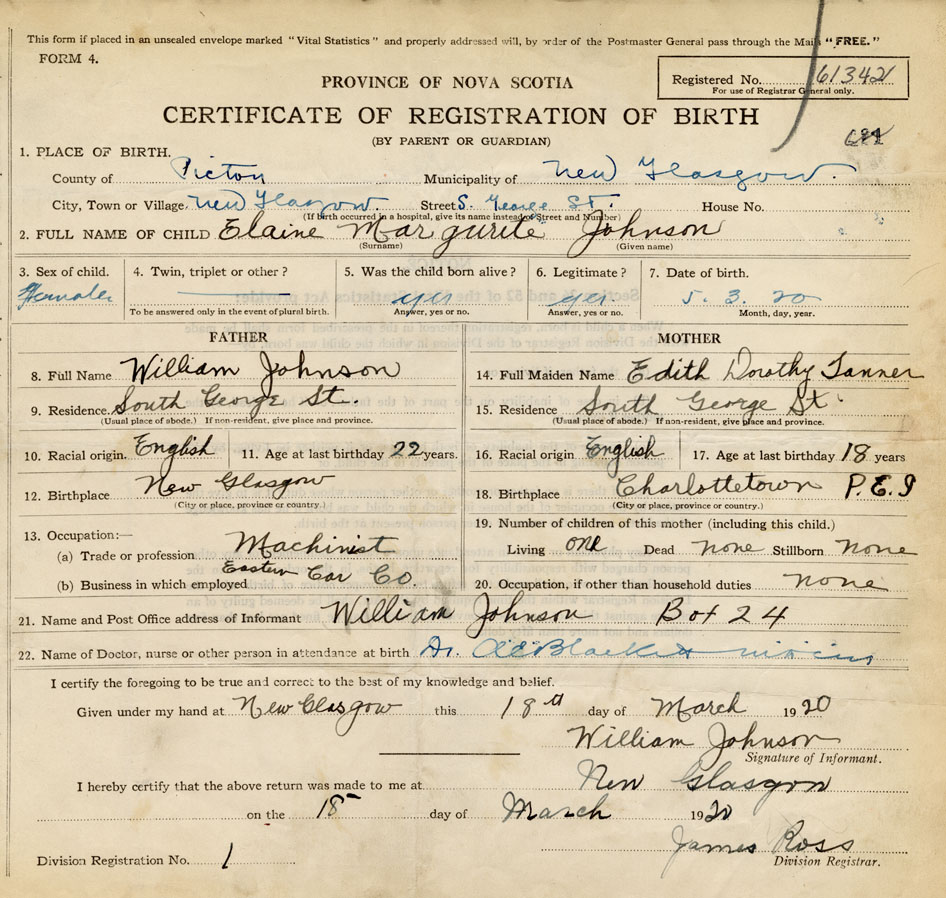 This form if placed in an unsealed envelope marked "Vital Statistics" and properly addressed will, by order of the Postmaster General pass through the Mails "FREE."
FORM 4.
Registered No. 61342
For use of Registrar General only.
PROVINCE OF NOVA SCOTIA
CERTIFICATE OF REGISTRATION OF BIRTH
(BY PARENT OR GUARDIAN)
1. PLACE OF BIRTH.
County of Pictou Municipality of New Glasgow.
City, Town or Village New Glasgow. Street S. George St. House No.
(If birth occurred in a hospital, give its name instead of Street and Number)
2. FULL NAME OF CHILD Elaine Margurite Johnson
(Surname) (Given name)
3. Sex of child. 4. Twin, triplet or other? 5. Was the child born alive? 6. Legitimate? 7. Date of birth.
Female yes yes. 5. 3. 20
To be answered only in the event of plural birth. Answer, yes or no. Answer, yes or no. Month, day, year.
FATHER
8. Full Name William Johnson
9. Residence. South George St.
(Usual place of abode.) If non-resident, give place and province.
10. Racial origin. English 11. Age at last birthday 22 years.
12. Birthplace New Glasgow
(City or place, province or country.)
13. Occupation:—
(a) Trade or profession Machinist
(b) Business in which employed Eastern Car Co.
MOTHER
14. Full Maiden Name Edith Dorothy Tanner
15. Residence South George St.
(Usual place of abode.) If non-resident, give place and province.
16. Racial origin English 17. Age at last birthday 18 years
18. Birthplace Charlottetown P.E.I
(City or place, province or country.)
19. Number of children of this mother (including this child.)
Living one Dead none Stillborn none
20. Occupation, if other than household duties none
21. Name and Post Office address of Informant William Johnson Box 24
22. Name of Doctor, nurse or other person in attendance at birth Dr.
I certify the foregoing to be true and correct to the best of my knowledge and belief.
Given under my hand at New Glasgow this 18th day of March 1920
William Johnson
Signature of Informant.
I hereby certify that the above return was made to me at New Glasgow
on the 18 day of March 1920
James Ross
Division Registrar.
Division Registration No. 1